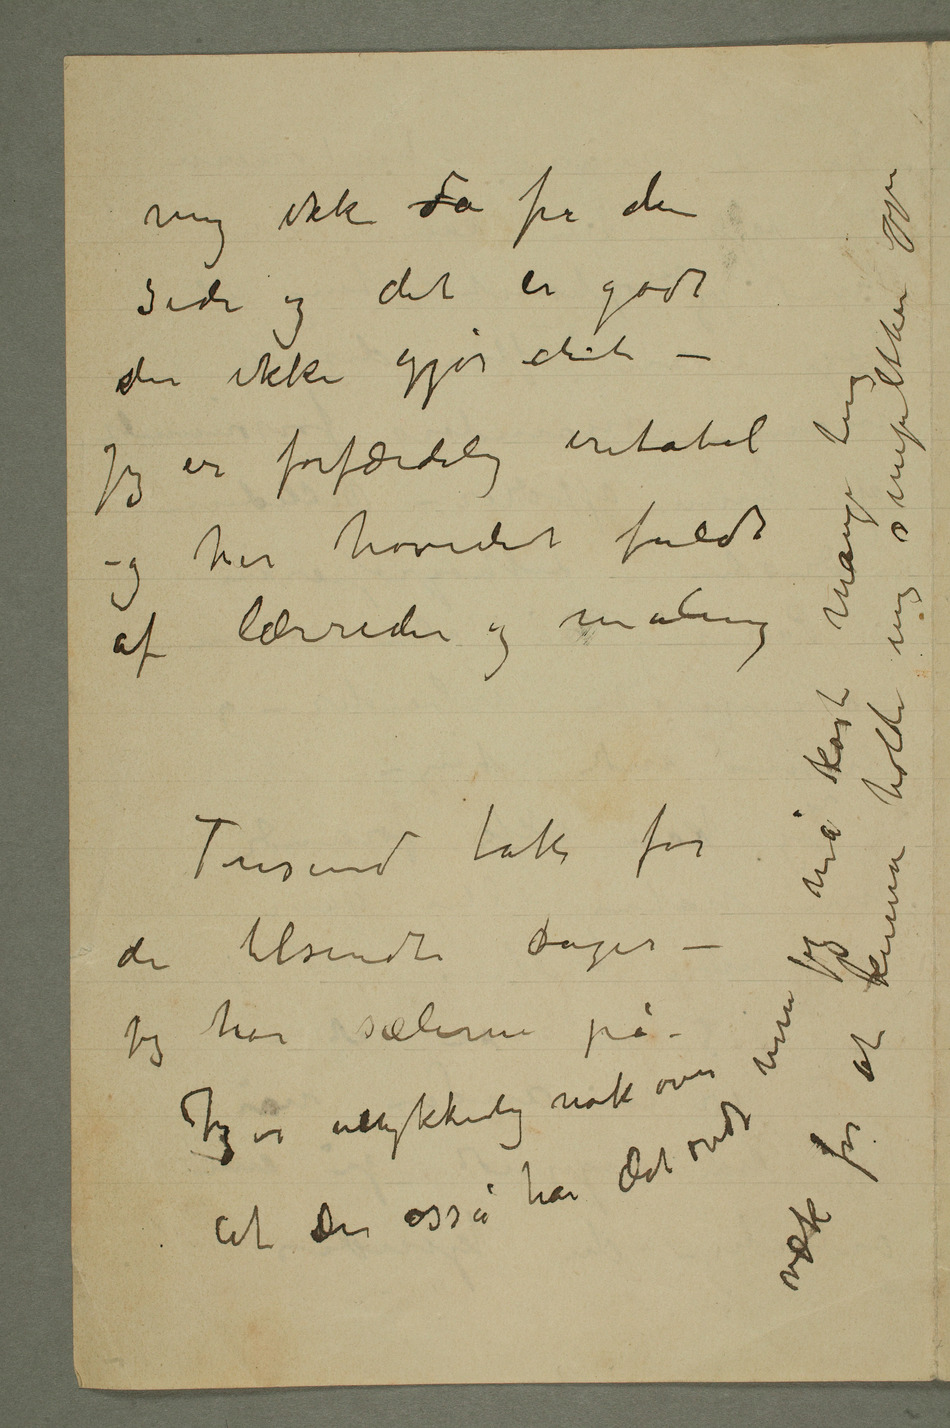 mig ikke da fra den
side og det er godt
du ikke gjør det –
Jeg er forfærdelig iritabel
og har hovedet fuldt
af lærreder og maling
Tusend tak for
de tilsendte sager –
Jeg har sælerne på –
Jeg er ulykkelig nok over
at Du også har det ondt men jeg må kaste mange ting
væk for at kunne holde mig simpelthen oppe